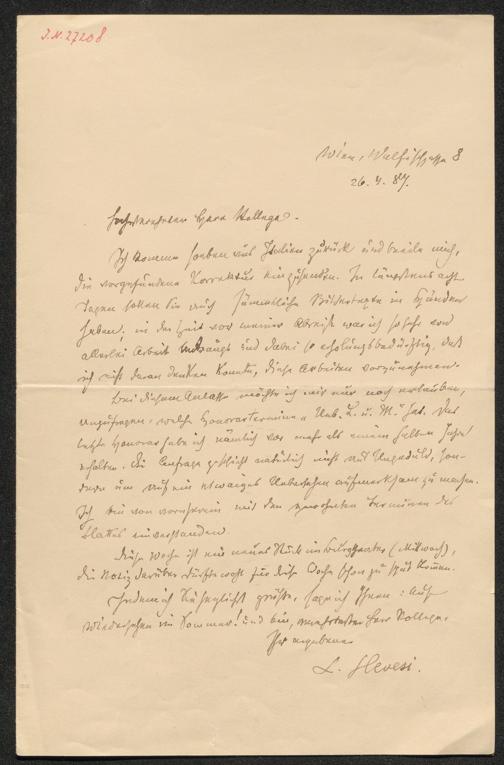 J.N. 27208
Wien, Walfischgasse 8
26. 4. 87.
Hochverehrter Herr Kollege.
Ich komme soeben aus Italien zurück und beeile mich,
die vorgefundene Korrektur einzusenden. In längstens acht
Tagen sollen Sie auch sämmtliche Bildertexte in Händen
haben; in der Zeit vor meiner Abreise war ich so sehr von
allerlei Arbeit bedrängt und dabei so erholungsbedürftig, daß
ich nicht daran denken konnte, diese Arbeiten vorzunehmen.
Bei diesem Anlaß möchte ich mir nur noch erlauben,
anzufragen, welche Honorartermine „Ueb. L. u. M." hat. Das
letzte Honorar habe ich nämlich vor mehr als einem halben Jahre
erhalten. Die Anfrage geschieht natürlich nicht aus Ungeduld, son-
dern um auf ein etwaiges Uebersehen aufmerksam zu machen.
Ich bin von vornherein mit den gewohnten Terminen des
Blattes einverstanden.
Diese Woche ist ein neues Stück im Burgtheater (Mittwoch),
die Notiz darüber dürfte wohl für diese Woche schon zu spät kommen.
Indem ich Sie herzlichst grüße, sage ich Ihnen: Auf
Wiedersehen im Sommer! und bin, verehrtester Herr Kollege,
Ihr ergebener
L. Hevesi.